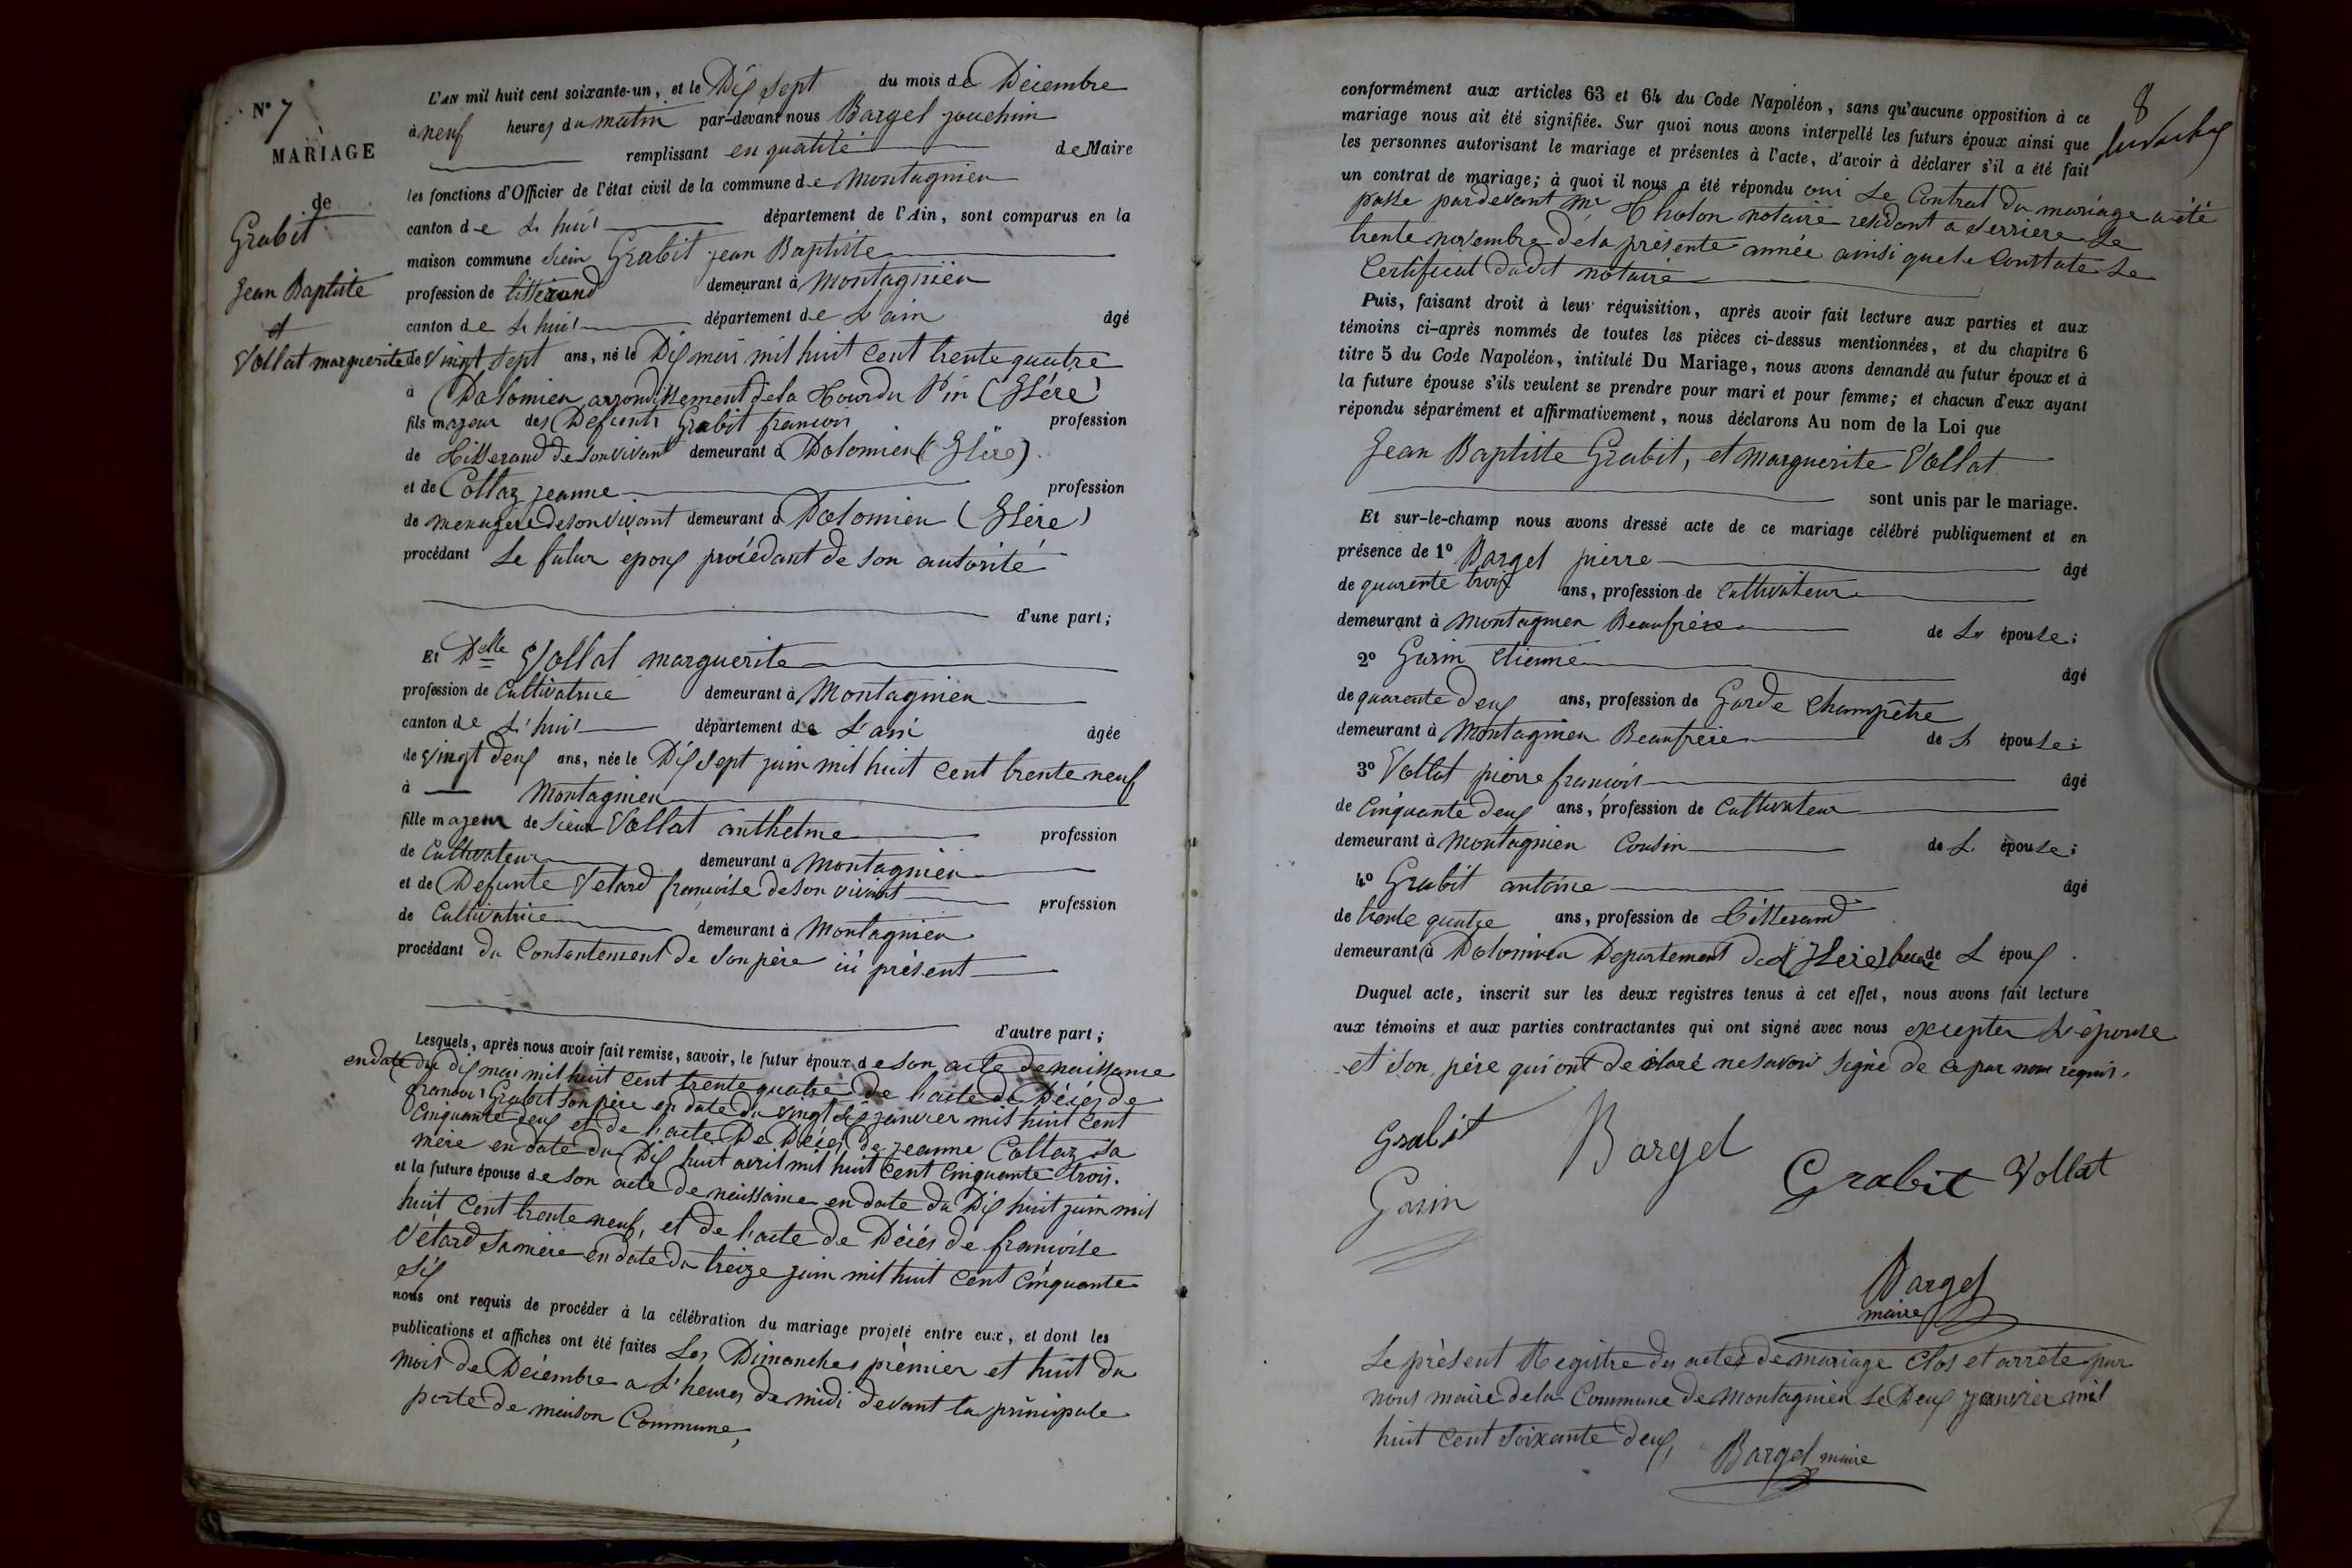 N° 7
MARIAGE
de
Grabit
Jean Baptiste
et
Vollat marguerite
L'AN mil huit cent soixante-un, et le Dix sept du mois de Décembre
à neuf heures du matin par-devant nous Bargel joachim
remplissant en qualité de Maire
les fonctions d'Officier de l'état civil de la commune de Montagnieu
canton de L huis département de l'Ain, sont comparus en la
maison commune sieur Grabit jean Baptiste
profession de tisserand demeurant à Montagnieu
canton de L huis département de L'ain âgé
de vingt sept ans, né le Dix mai mil huit cent trente quatre
à Dolomieu arrondissement de la Tour du Pin (Isére)
fils majeur des Defunts Grabit francois profession
de Tisserand de son vivant demeurant à Dolomieu (Isère)
et de Collaz jeanne profession
de menagère de son vivant demeurant à Dolomieu (Isére)
procédant Le futur époux procédant de son autorité
d'une part;
Et Delle Vollat marguerite
profession de Cultivatrice demeurant à Montagnieu
canton de L'huis département de L'ain âgée
de vingt deux ans, née le Dix sept juin mil huit cent trente neuf
à Montagnieu
fille majeur de sieur Vollat anthelme profession
de Cultivateur demeurant à Montagnieu
et de Defunte Vetard françoise de son vivant profession
de Cultivatrice demeurant à Montagnieu
procédant du Consentement de son père ici présent
d'autre part;
Lesquels, après nous avoir fait remise, savoir, le futur époux de son acte de naissance
en date du dix mai mil huit cent trente quatre de l'acte de Décés de
francois Grabit son père en date du vingt six janvier mil huit cent
Cinquante deux et de l'acte De Décés de jeanne Collaz sa
mère en date du Dix huit avril mil huit cent Cinquante trois.
et la future épouse de son acte de naissance en date du Dix huit juin mil
huit cent trente neuf, et de l'acte de Décés de françoise
Vétard sa mère en date du treize juin mil huit cent cinquante
six
nous ont requis de procéder à la célébration du mariage projeté entre eux, et dont les
publications et affiches ont été faites Les Dimanches prémier et huit du
mois de Décembre a L'heures de midi devant la principale
porte de maison Commune,
8
conformément aux articles 63 et 64 du Code Napoléon, sans qu'aucune opposition à ce
mariage nous ait été signifiée. Sur quoi nous avons interpellé les futurs époux ainsi que
les personnes autorisant le mariage et présentes à l'acte, d'avoir à déclarer s'il a été fait
un contrat de mariage; à quoi il nous a été répondu oui Le Contrat du mariage a été
passe pardevant Me Tholon notaire residant a serriere Le
trente novembre de la présente année ainsi que le Constate Le
Certificat dudit notaire
Puis, faisant droit à leur réquisition, après avoir fait lecture aux parties et aux
témoins ci-après nommés de toutes les pièces ci-dessus mentionnées, et du chapitre 6
titre 5 du Code Napoléon, intitulé Du Mariage, nous avons demandé au futur époux et à
la future épouse s'ils veulent se prendre pour mari et pour femme; et chacun d'eux ayant
répondu séparément et affirmativement, nous déclarons Au nom de la Loi que
Jean Baptiste Grabit, et Marguerite Vollat
sont unis par le mariage.
Et sur-le-champ nous avons dressé acte de ce mariage célébré publiquement et en
présence de 1° Bargel pierre âgé
de quarente trois ans, profession de Cultivateur
demeurant à Montagnieu Beaufrère de L' épouse;
2° Garin etienne âgé
de quarente deux ans, profession de Garde Champêtre
demeurant à Montagnieu Beaufrère de L épouse;
3° Vollat pierre françois âgé
de Cinquante deux ans, profession de Cultivateur
demeurant à Montagnieu Cousin de L épouse;
4° Grabit antoine âgé
de trente quatre ans, profession de Tisserand
demeurant à Dolomieu Departement de (Isère) de L époux.
Duquel acte, inscrit sur les deux registres tenus à cet effet, nous avons fait lecture
aux témoins et aux parties contractantes qui ont signé avec nous excepter L'épouse
et son père qui ont déclaré ne savoir signé de ce par nous requis.
Grabit Bargel Grabit Vollat
Garin
Bargel
maire
Le présent Registre des actes de mariage Clos et arrête par
nous maire de la Commune de Montagnieu Le Deux janvier mil
huit cent soixante deux,
Bargel maire